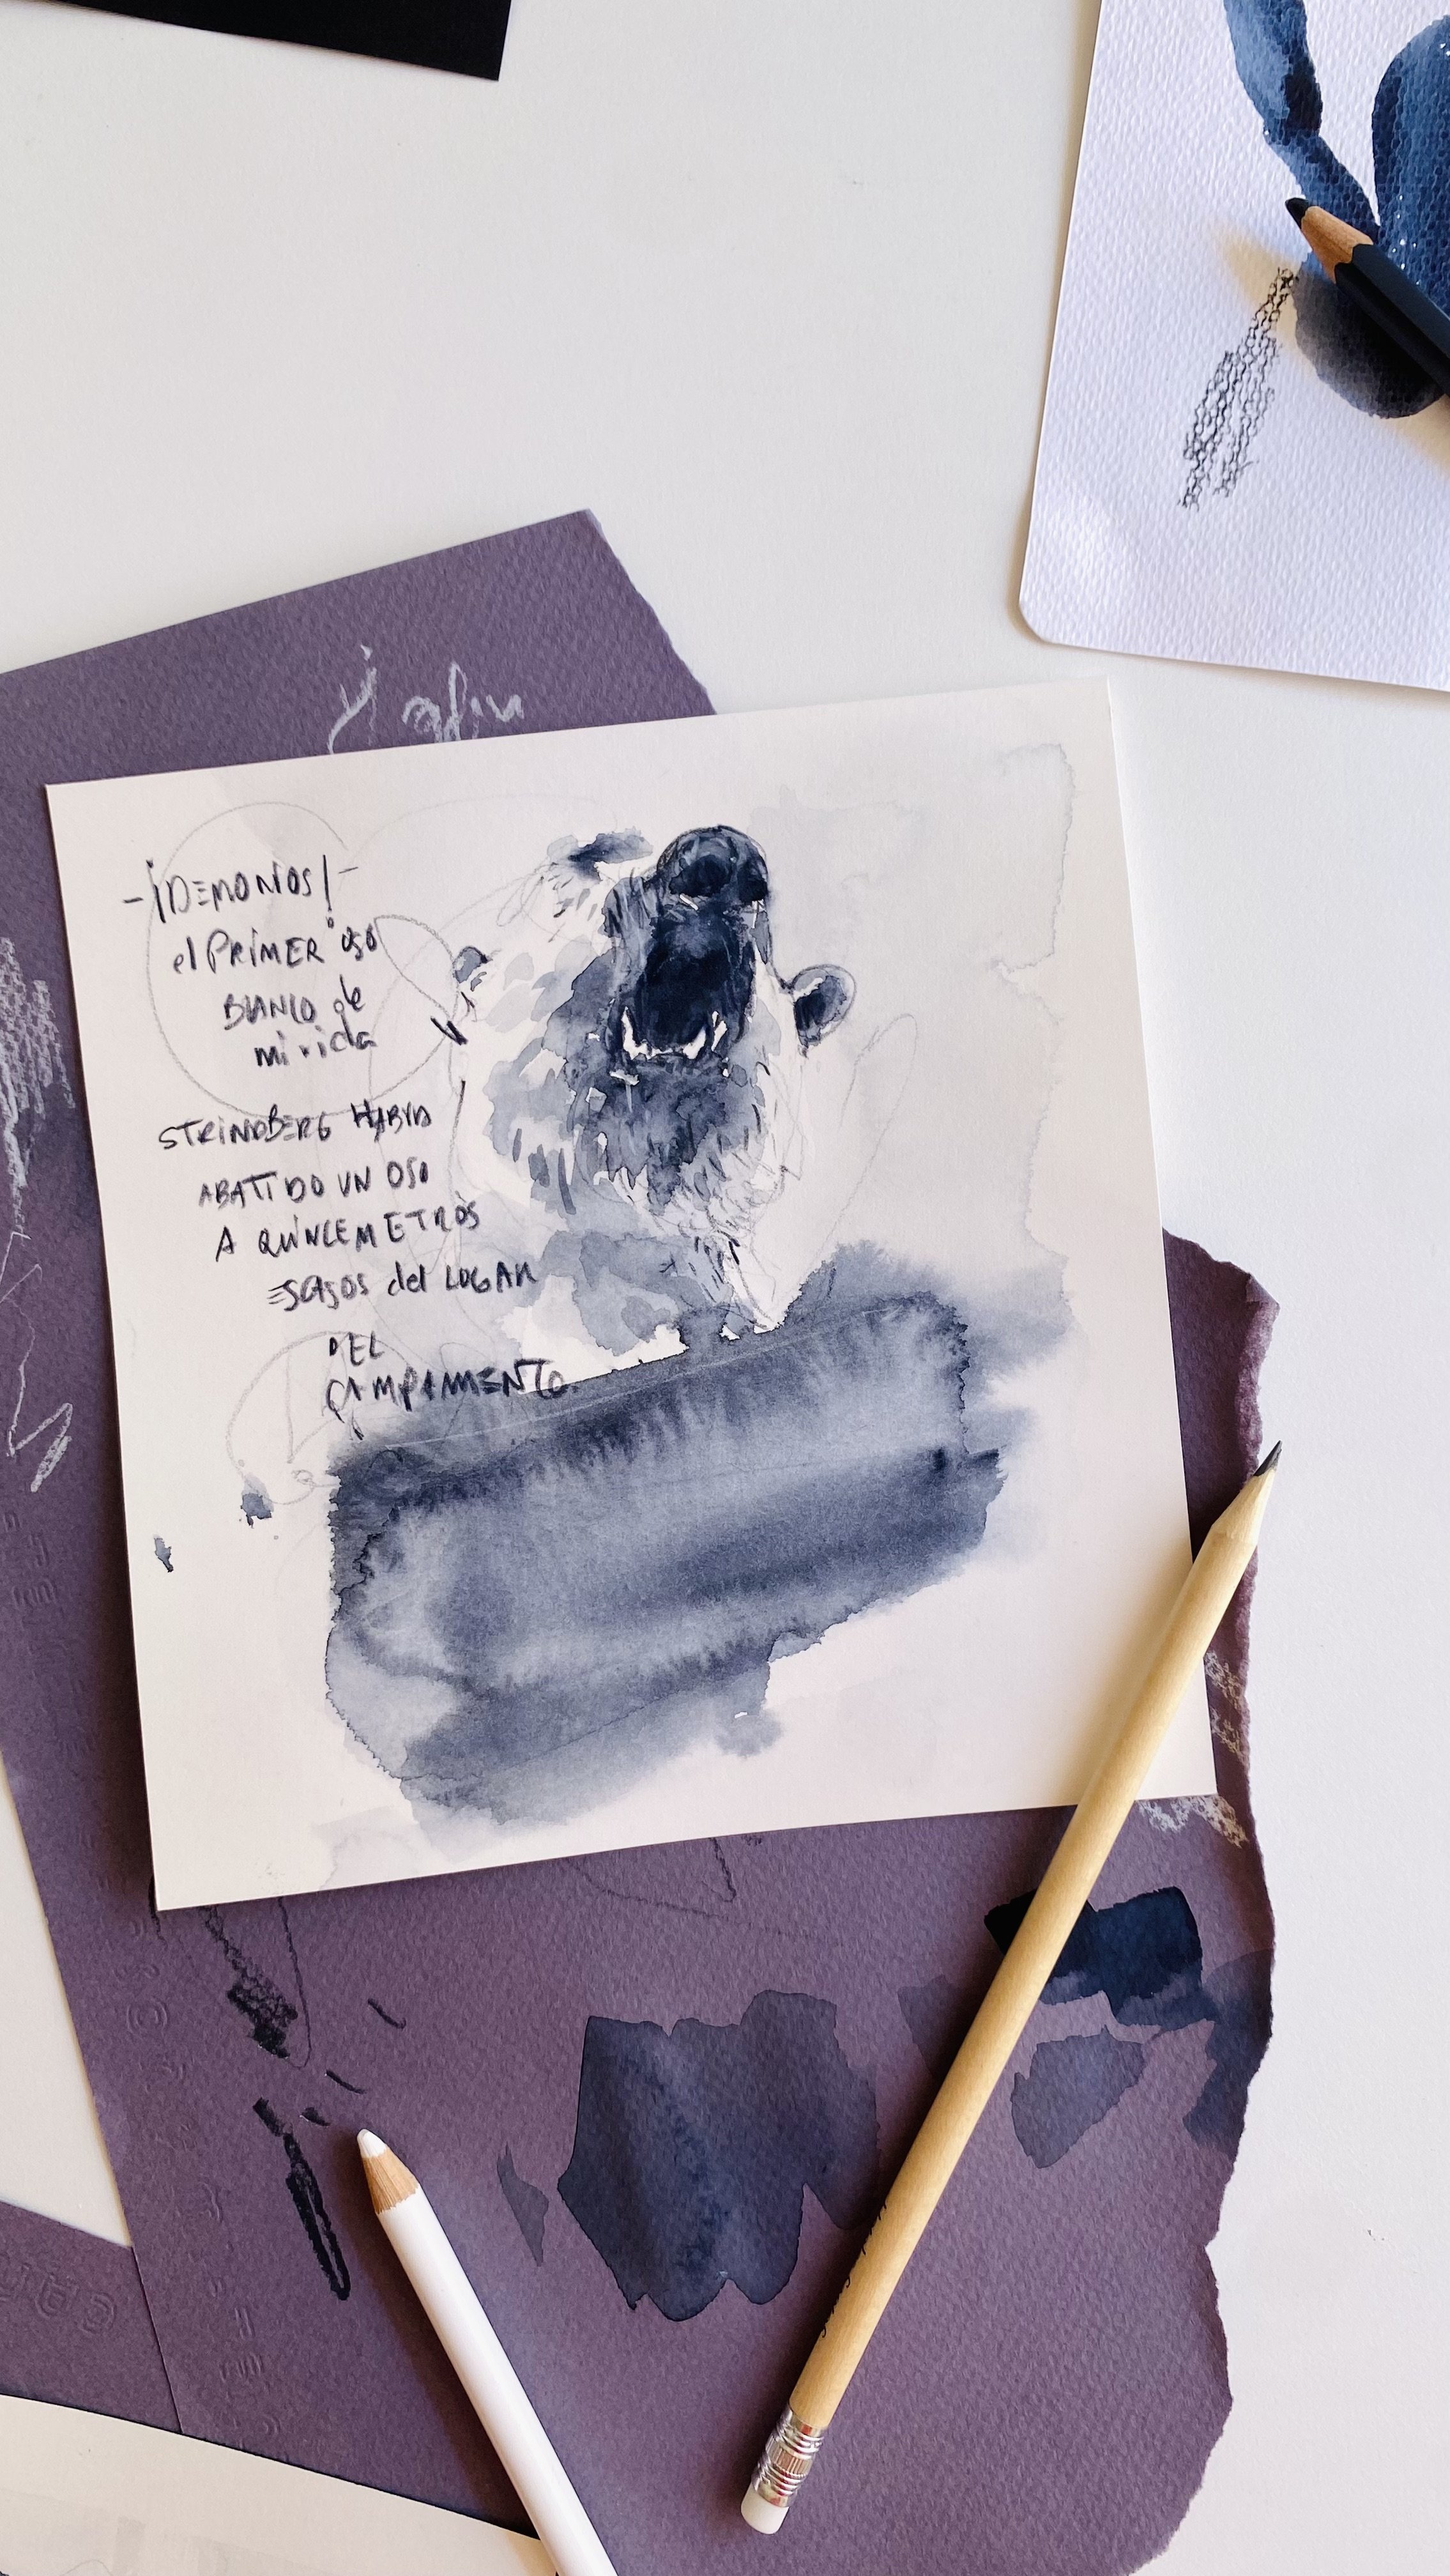 -¡DEMONIOS!-
el PRIMER OSO
BLANCO de
mi vida
STRINDBERG HABÍA
ABATIDO UN OSO
A QUINCE METROS
ESCASOS del LUGAR
DEL
CAMPAMENTO.